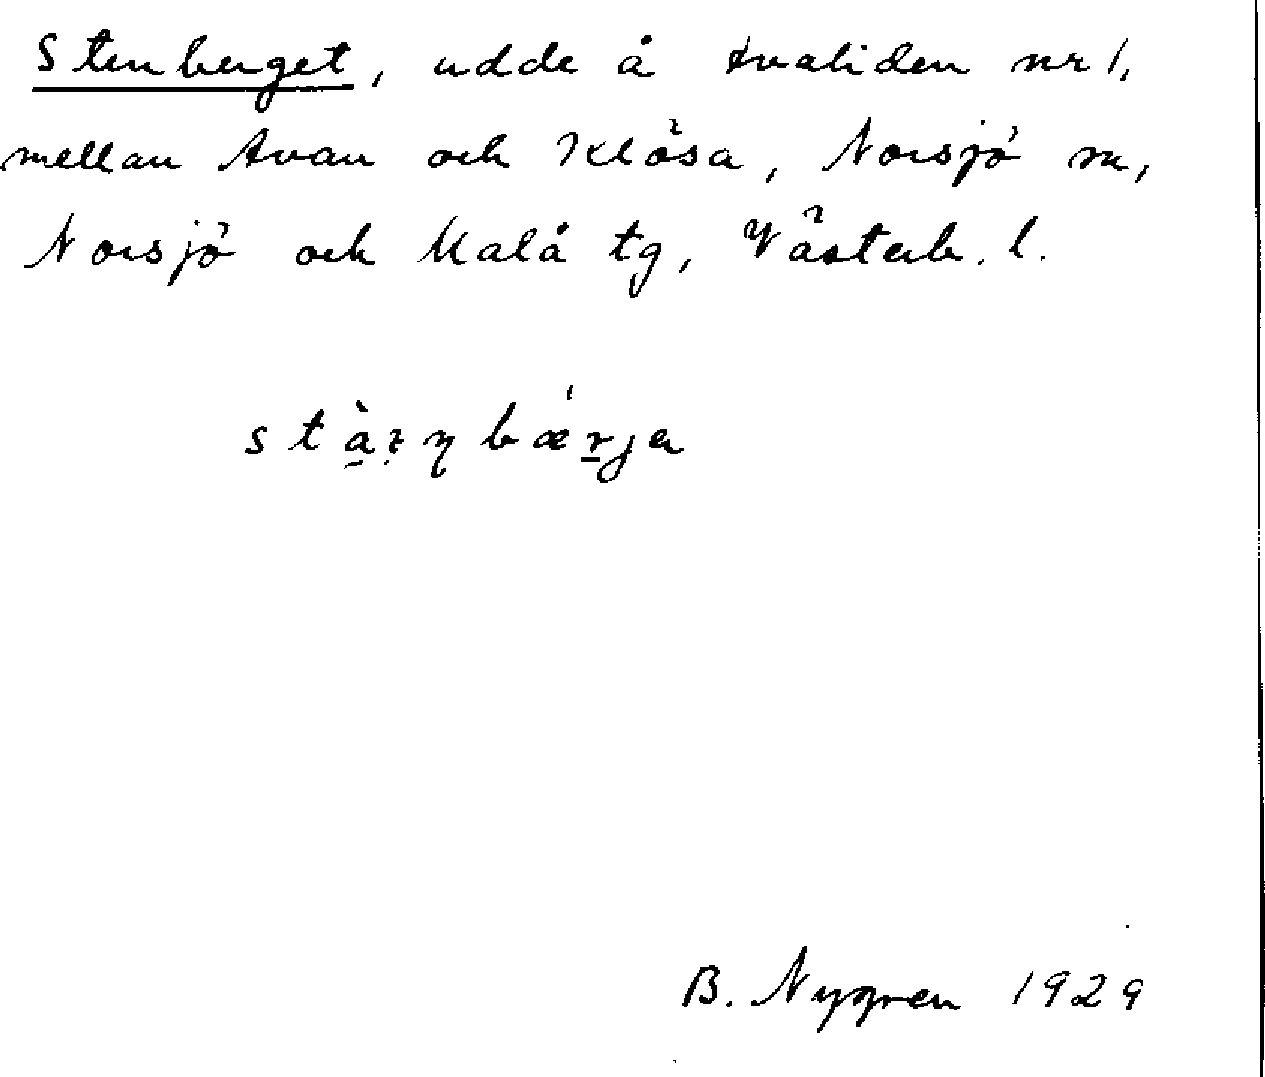 Stenberget, udde å Avaliden nr 1,
mellan Avan och Klösa, Norsjö sn,
Norsjö och Malå tg, Västerb. l.
B. Nygren 1929